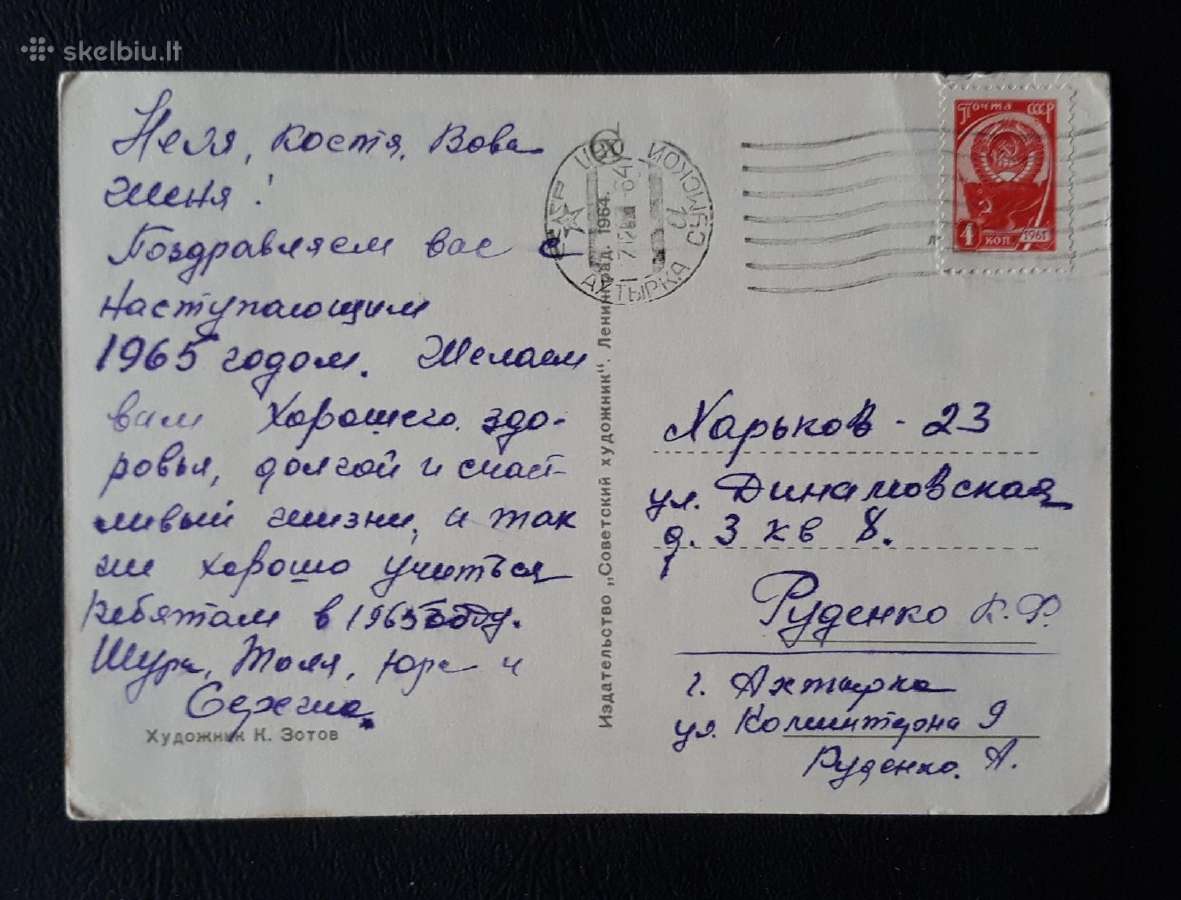 skelbiu.lt
Неля, Костя, Вова
Женя!
Поздравляем вас с
наступающим
1965 годом. Желаем
вам хорошего здо-
ровья, долгой и счаст-
ливый жизни, и так
же хорошо учиться
ребятам в 1965 году.
Шура, Толя, Юра и
Сережа.
Художник К. Зотов
Издательство „Советский художник". Ленинград. 1964.
АХТЫРКА СУМСКОЙ
Почта СССР
4 коп 1961
Харьков - 23
ул. Динамовская
д. 3 кв 8.
Руденко К. Ф.
г. Ахтырка
ул. Коминтерна 9
Руденко. А.